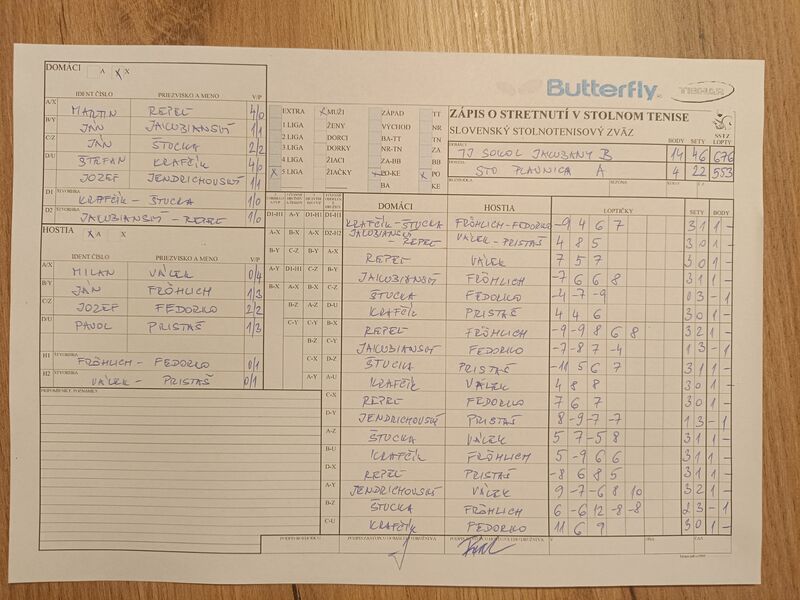 DOMÁCI A X X
IDENT ČÍSLO PRIEZVISKO A MENO V/P
A/X MARTIN REPEL 4/0
B/Y JÁN JAKUBIANSKÝ 1/1
C/Z JÁN ŠTUCKA 2/2
D/U ŠTEFAN KRAFČÍK 4/0
JOZEF JENDRICHOVSKÝ 1/1
D1 ŠTVORHRA KRAFČÍK - ŠTUCKA 1/0
D2 ŠTVORHRA JAKUBIANSKÝ - REPEL 1/0
HOSTIA X A X
IDENT ČÍSLO PRIEZVISKO A MENO V/P
A/X MILAN VÁLEK 0/4
B/Y JÁN FRÖHLICH 1/3
C/Z JOZEF FEDORKO 2/2
D/U PAVOL PRISTAŠ 1/3
H1 ŠTVORHRA FRÖHLICH - FEDORKO 0/1
H2 ŠTVORHRA VÁLEK - PRISTAŠ 0/1
PRIPOMIENKY, POZNÁMKY
Butterfly TIBHAR
EXTRA X MUŽI ZÁPAD TT
1 LIGA ŽENY VÝCHOD NR
2 LIGA DORCI BA-TT TN
3 LIGA DORKY NR-TN ZA
4 LIGA ŽIACI ZA-BB BB
X 5 LIGA ŽIAČKY X PO-KE X PO
BA KE
ZÁPIS O STRETNUTÍ V STOLNOM TENISE
SLOVENSKÝ STOLNOTENISOVÝ ZVÄZ
SSTZ
BODY SETY LOPTY
DOMÁCI TJ SOKOL JAKUBANY B 14 46 676
HOSTIA STO PLAVNICA A 4 22 553
DOMÁCI HOSTIA LOPTIČKY SETY BODY
KRAFČÍK - ŠTUCKA FRÖHLICH - FEDORKO -9 4 6 7 3 1 1 -
JAKUBIANSKÝ REPEL VÁLEK - PRISTAŠ 4 8 5 3 0 1 -
REPEL VÁLEK 7 5 7 3 0 1 -
JAKUBIANSKÝ FRÖHLICH -7 6 6 8 3 1 1 -
ŠTUCKA FEDORKO -4 -7 -9 0 3 - 1
KRAFČÍK PRISTAŠ 4 4 6 3 0 1 -
REPEL FRÖHLICH -9 -9 8 6 8 3 2 1 -
JAKUBIANSKÝ FEDORKO -7 -8 7 -4 1 3 - 1
ŠTUCKA PRISTAŠ -11 5 6 7 3 1 1 -
KRAFČÍK VÁLEK 4 8 8 3 0 1 -
REPEL FEDORKO 7 6 7 3 0 1 -
JENDRICHOVSKÝ PRISTAŠ 8 -9 -7 -7 1 3 - 1
ŠTUCKA VÁLEK 5 7 -5 8 3 1 1 -
KRAFČÍK FRÖHLICH 5 -9 6 6 3 1 1 -
REPEL PRISTAŠ -8 6 8 5 3 1 1 -
JENDRICHOVSKÝ VÁLEK 9 -7 -6 8 10 3 2 1 -
ŠTUCKA FRÖHLICH 6 -6 12 -8 -8 2 3 - 1
KRAFČÍK FEDORKO 11 6 9 3 0 1 -